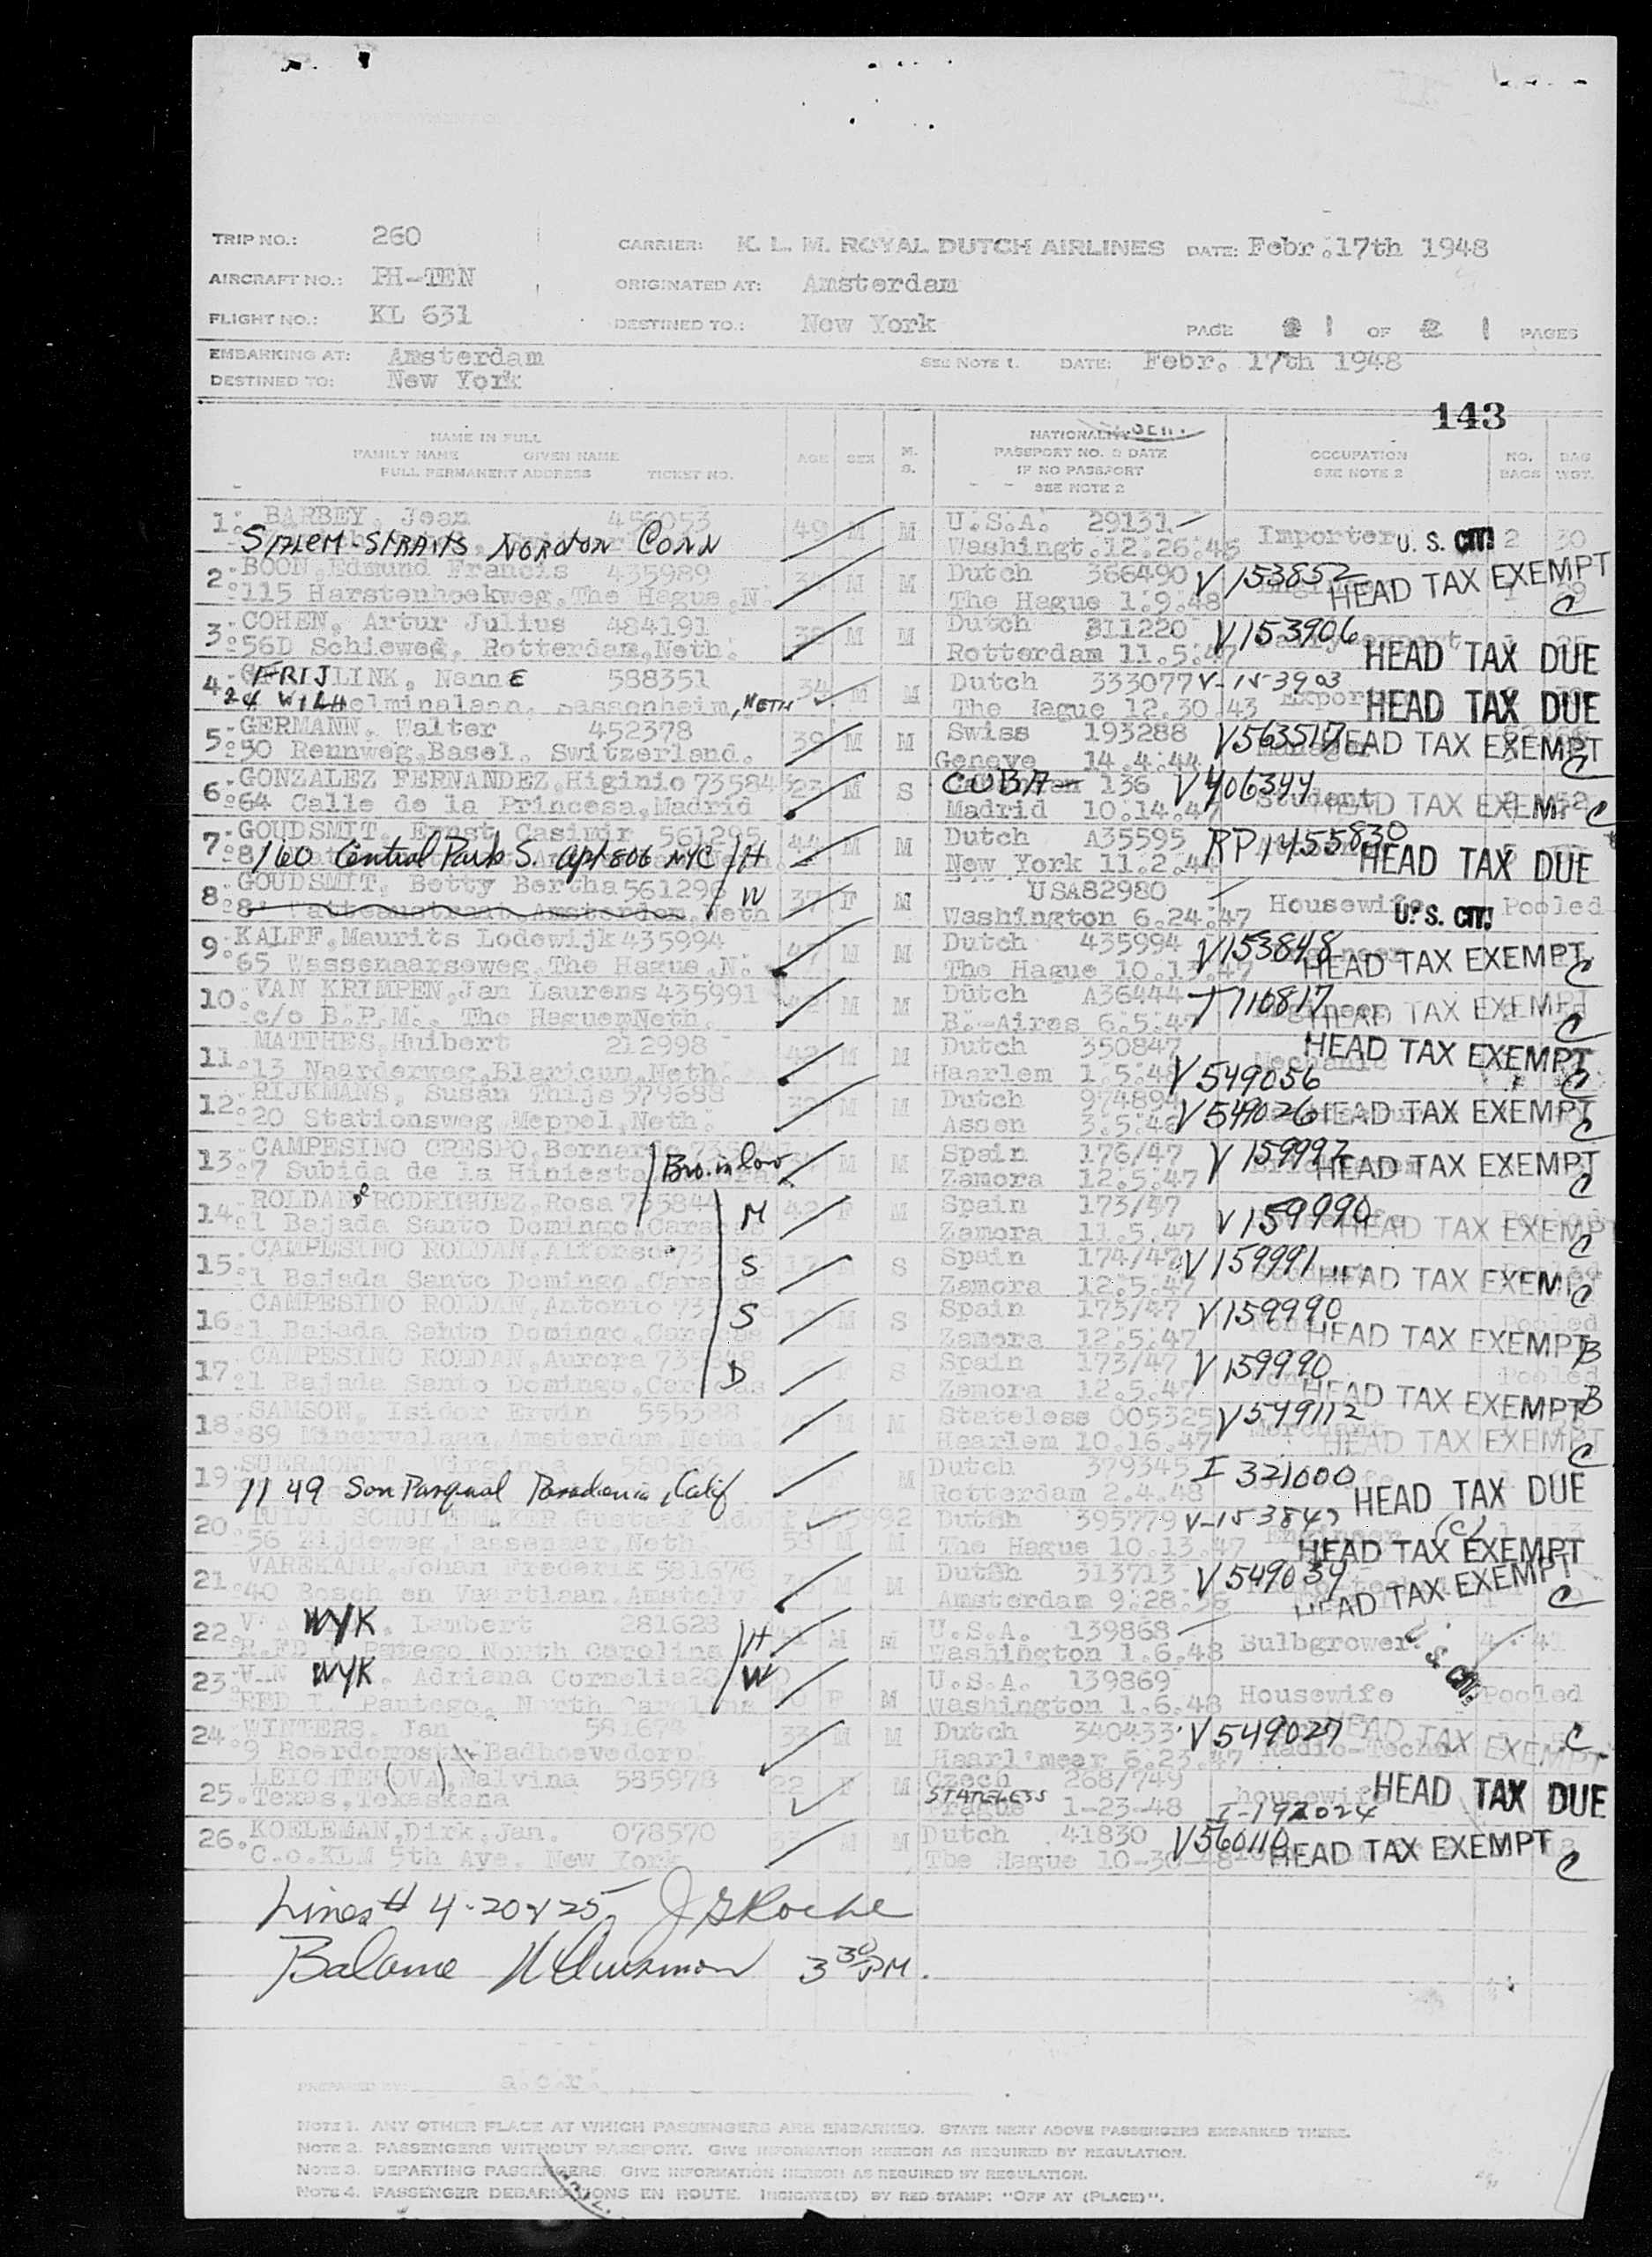 TRIP NO.: 260 CARRIER: K. L. M. ROYAL DUTCH AIRLINES DATE: Febr. 17th 1948
AIRCRAFT NO.: PH-TEN ORIGINATED AT: Amsterdam
FLIGHT NO.: KL 631 DESTINED TO.: New York PAGE 1 OF 1 PAGES
EMBARKING AT: Amsterdam SEE NOTE 1. DATE: Febr. 17th 1948
DESTINED TO: New York
143
NAME IN FULL
FAMILY NAME GIVEN NAME
FULL PERMANENT ADDRESS TICKET NO.
AGE SEX M. S.
NATIONALITY
PASSPORT NO. & DATE
IF NO PASSPORT
SEE NOTE 2
OCCUPATION
SEE NOTE 2
NO. BAGS
BAG WGT.
1. BARBEY, Jean 456053 49 M M U.S.A. 29131
SALEM-STRAITS NOROTON CONN Washingt. 12.26.46 Importer U. S. CIT! 2 30
2. BOON, Edmund Francis 435989 M M Dutch 366490 V 153852 HEAD TAX EXEMPT
115 Harstenhoekweg, The Hague, N. The Hague 1.9.48 C
3. COHEN, Artur Julius 484191 M M Dutch 311220 V 153906
56D Schieweg, Rotterdam, Neth. Rotterdam 11.5.47 HEAD TAX DUE
4. FRIJLINK, NannE 588351 34 M M Dutch 333077 V-153903
24 WILHelminalaan, Sassenheim, NETH The Hague 12.30.43 Export HEAD TAX DUE
5. GERMANN, Walter 452378 39 M M Swiss 193288 V563517 HEAD TAX EXEMPT
30 Rennweg, Basel, Switzerland. Geneve 14.4.44 Manager C
6. GONZALEZ FERNANDEZ, Higinio 73584 23 M S CUBA 136 V406344
64 Calle de la Princesa, Madrid Madrid 10.14.47 Student HEAD TAX EXEMPT C
7. GOUDSMIT, Ernst Casimir 561295 44 M M Dutch A35595 RP1455830
160 Central Park S. apt 806 NYC H New York 11.2.44 HEAD TAX DUE
8. GOUDSMIT, Betty Bertha 561296 W 37 F M USA82980
Watteaustraat Amsterdam, Neth Washington 6.24.47 Housewife U. S. CIT! Pooled
9. KALFF, Maurits Lodewijk 435994 47 M M Dutch 435994 V153848
65 Wassenaarseweg, The Hague, N. The Hague 10.13.47 HEAD TAX EXEMPT C
10. VAN KRIMPEN, Jan Laurens 435991 M M Dutch A36444 T710817
c/o B.P.M., The Hague, Neth. B.-Aires 6.5.47 Engineer HEAD TAX EXEMPT C
11. MATTHES, Huibert 212998 42 M M Dutch 350847 HEAD TAX EXEMPT
13 Naarderweg, Blaricum, Neth. Haarlem 1.5.48 V549056 C
12. RIJKMANS, Susan Thijs 579688 M M Dutch 974894
20 Stationsweg Meppel, Neth. Assen 3.5.46 V549026 HEAD TAX EXEMPT C
13. CAMPESINO CRESPO, Bernardo Bro. in law M M Spain 176/47 V 159992
7 Subida de la Hiniesta Zamora 12.5.47 HEAD TAX EXEMPT C
14. ROLDAN de RODRIGUEZ, Rosa 735844 M 42 F M Spain 173/47 V159990
1 Bajada Santo Domingo, Caracas Zamora 11.5.47 HEAD TAX EXEMPT C
15. CAMPESINO ROLDAN, Alfonso S 17 S Spain 174/47 V159991
1 Bajada Santo Domingo, Caracas Zamora 12.5.47 HEAD TAX EXEMPT C
16. CAMPESINO ROLDAN, Antonio S M S Spain 173/47 V159990 Pooled
1 Bajada Santo Domingo, Caracas Zamora 12.5.47 None HEAD TAX EXEMPT B
17. CAMPESINO ROLDAN, Aurora D F S Spain 173/47 V159990 Pooled
1 Bajada Santo Domingo, Caracas Zamora 12.5.47 HEAD TAX EXEMPT B
18. SAMSON, Isidor Erwin 555388 M M Stateless 005325 V549112
89 Minervalaan, Amsterdam, Neth. Haarlem 10.16.47 Merchant HEAD TAX EXEMPT C
19. SUERMONDT Virginia 580666 F M Dutch 379345 I 321000
1149 San Pasqual Pasadena, Calif Rotterdam 2.4.48 HEAD TAX DUE
20. SCHUITEMAKER Gustaaf Dutch 395779 V-153849
56 Zijdeweg, Wassenaar, Neth. 53 M M The Hague 10.13.47 Engineer (C) HEAD TAX EXEMPT
21. VAREKAMP, Johan Frederik 581676 M M Dutch 313713 V549034
40 Bosch en Vaartlaan, Amstelv. Amsterdam 9.28.36 HEAD TAX EXEMPT C
22. VAN WYK, Lambert 281628 H 41 M M U.S.A. 139868
R.FD Patego North Carolina Washington 1.6.48 Bulbgrower. U. S. CIT. 4 41
23. VAN WYK, Adriana Cornelia W F M U.S.A. 139869
RFD 1. Pantego, North Carolina Washington 1.6.48 Housewife Pooled
24. WINTERS, Jan 581674 33 M M Dutch 340433 V549027
9 Roerdompstr. Badhoevedorp. Haarl'meer 6.23.47 Radio-Techn HEAD TAX EXEMPT C
25. LEICHTER(OVA), Malvina 585978 22 F M Czech 268/749 HEAD TAX DUE
Texas, Texaskana STATELESS Prague 1-23-48 housewife I-192024
26. KOELEMAN, Dirk, Jan. 078570 M M Dutch 41830 V560110
C.o. KLM 5th Ave. New York The Hague 10-30-48 HEAD TAX EXEMPT C
Lines # 4-20 & 25 J G Roche
Balance 3 30 PM.
PREPARED BY: a.c.r.
NOTE 1. ANY OTHER PLACE AT WHICH PASSENGERS ARE EMBARKED. STATE NEXT ABOVE PASSENGERS EMBARKED THERE.
NOTE 2. PASSENGERS WITHOUT PASSPORT. GIVE INFORMATION HEREON AS REQUIRED BY REGULATION.
NOTE 3. DEPARTING PASSENGERS. GIVE INFORMATION HEREON AS REQUIRED BY REGULATION.
NOTE 4. PASSENGER DEBARKATIONS EN ROUTE. INDICATE(D) BY RED STAMP: "OFF AT (PLACE)".